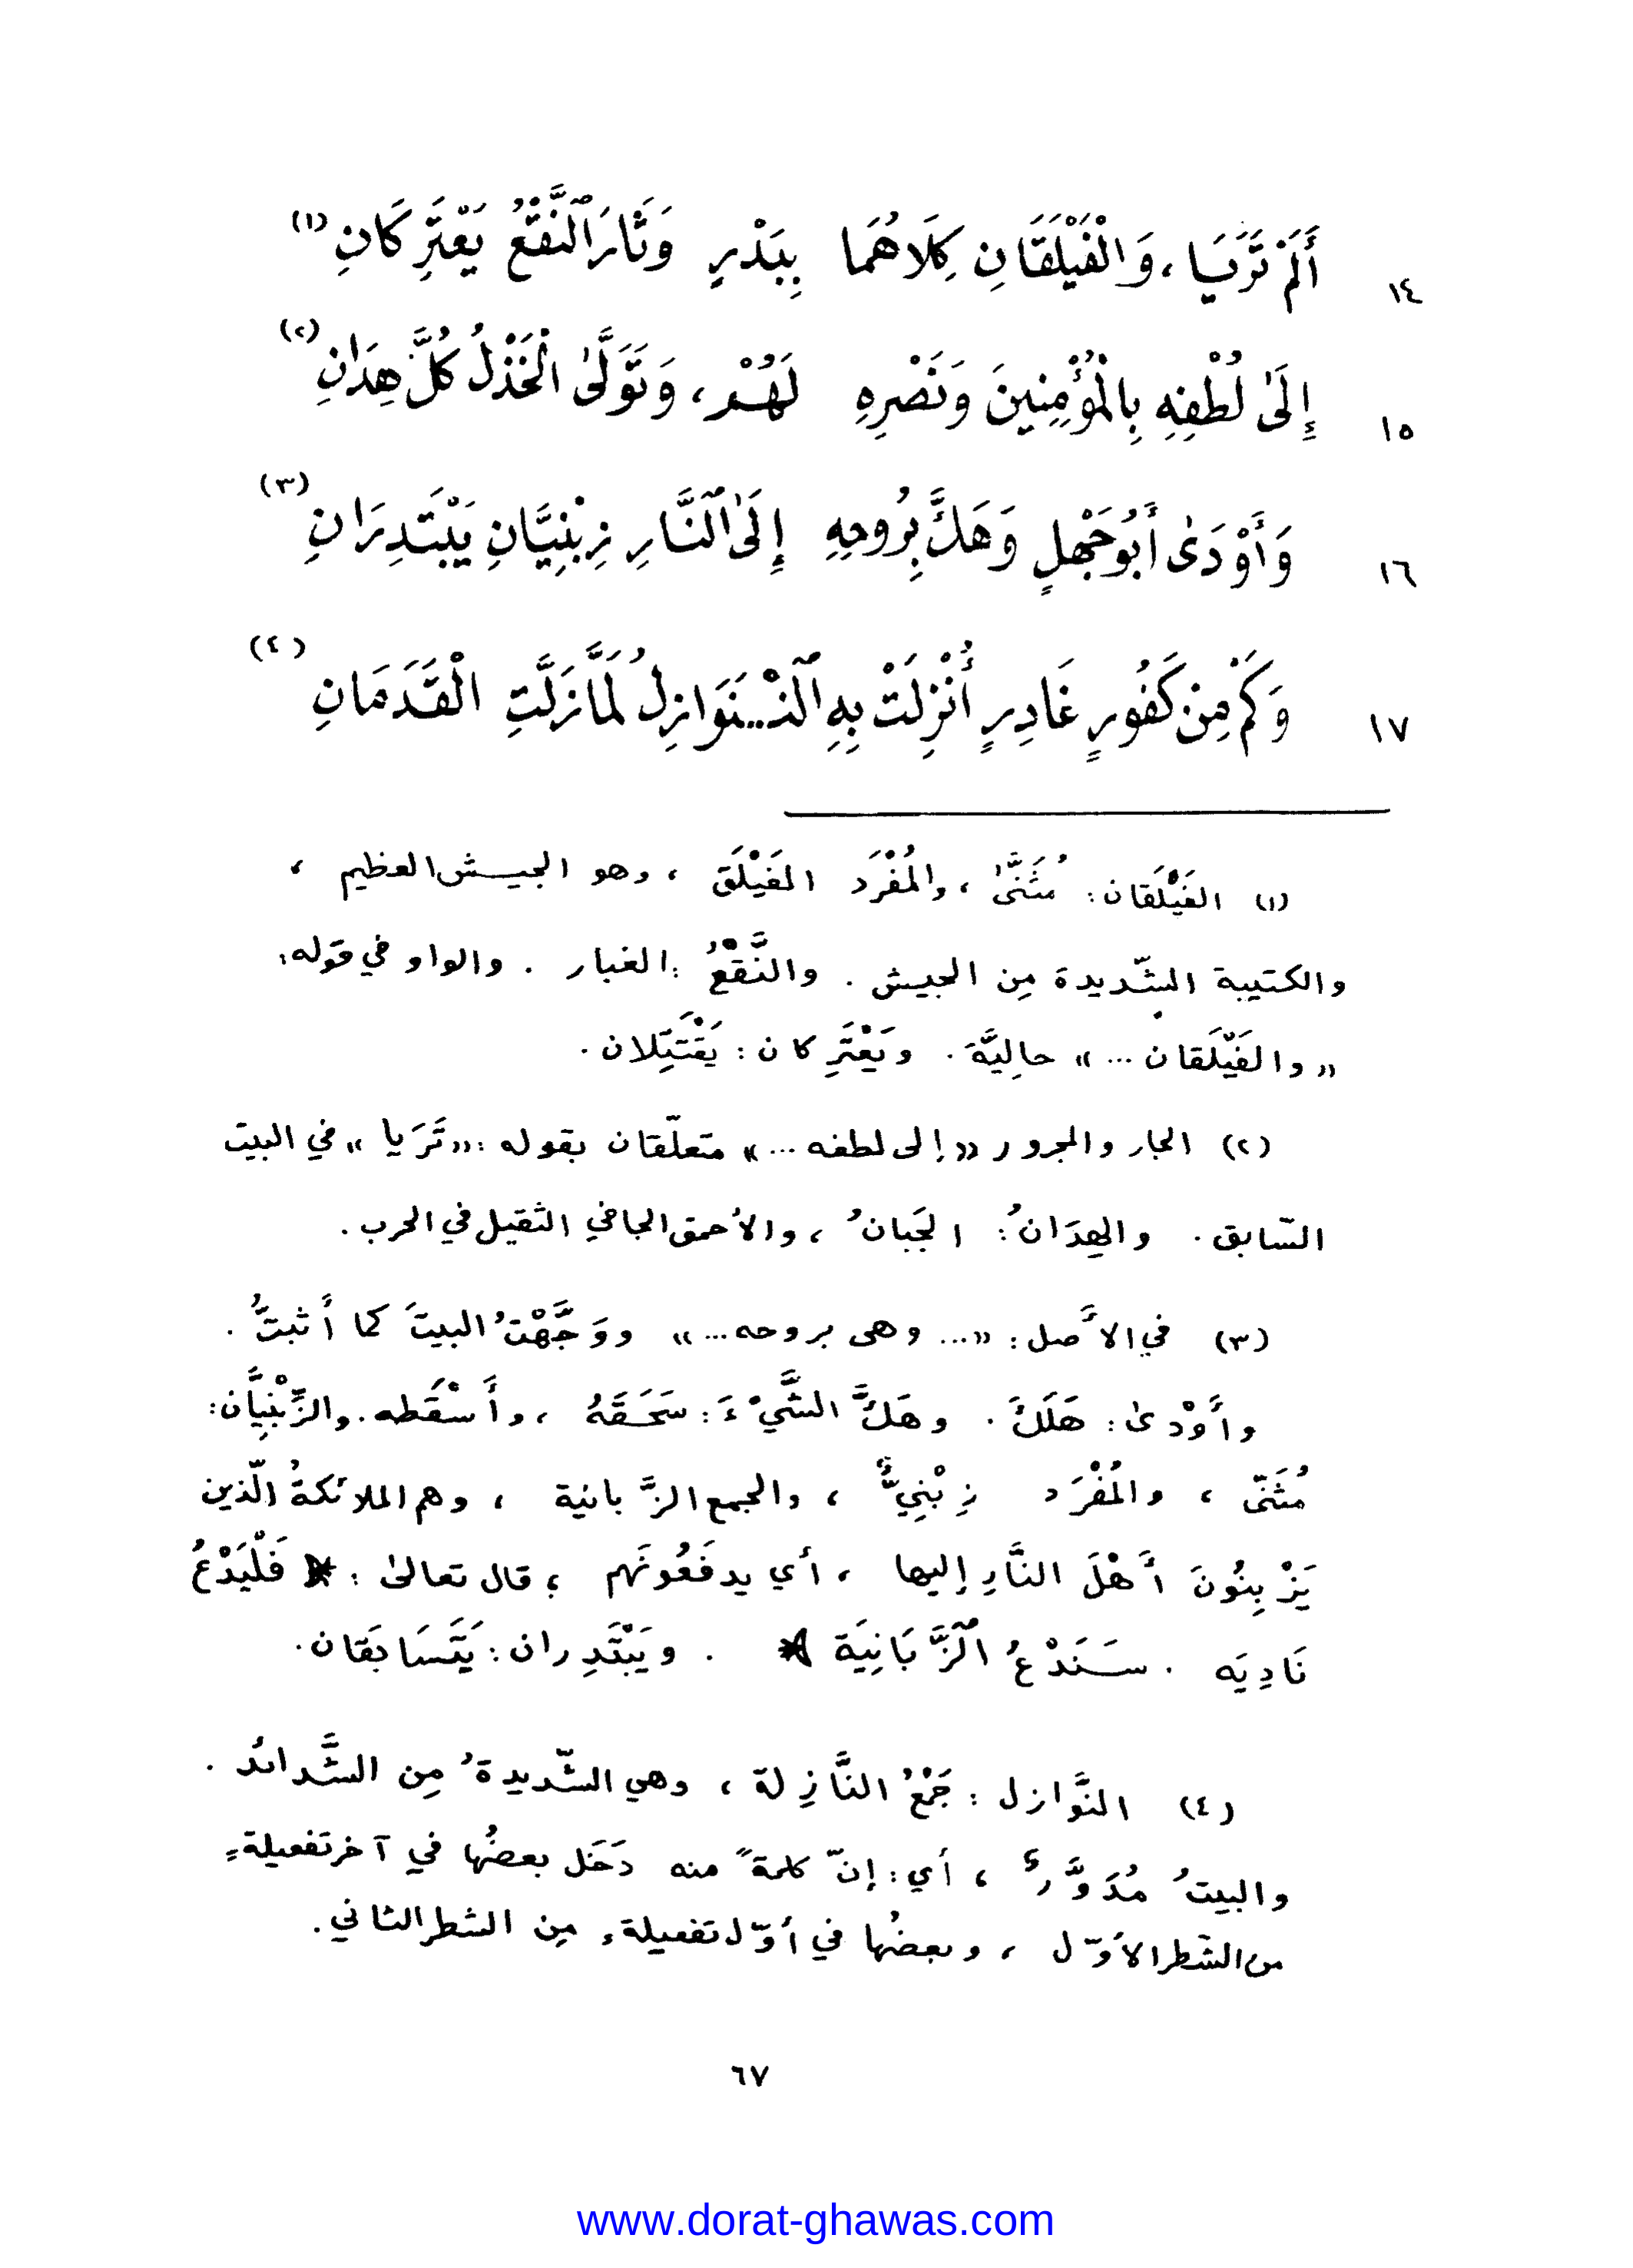 ١٤ أَلَمْ تَرَيَا ، وَالْفَيْلَقَانِ كِلَاهُمَا بِبَدْرٍ وَثَارَ ٱلنَّقْعُ يَعْتَرِكَانِ (١)
١٥ إِلَىٰ لُطْفِهِ بِالْمُؤْمِنِينَ وَنَصْرِهِ لَهُمْ ، وَتَوَلَّىٰ الْخَذْلُ كُلَّ هِدَانِ (٢)
١٦ وَأَوْدَىٰ أَبُو جَهْلٍ وَهَكَّ بِرُوحِهِ إِلَىٰ ٱلنَّارِ زِبْنِيَّانِ يَبْتَدِرَانِ (٣)
١٧ وَكَمْ مِنْ كَفُورٍ غَادِرٍ أُنْزِلَتْ بِهِ ٱلنْـ...ـنَوَازِلُ لَمَّا زَلَّتِ الْقَدَمَانِ (٤)
(١) الفَيْلَقان : مُثَنَّىٰ ، والمُفْرَد الفَيْلَق ، وهو الجيش العظيم ،
والكتيبة الشّديدة مِن الجيش . والنَّقْعُ : الغبار . والواو في قوله :
« والفَيْلَقان ... » حاليَّة . ويَعْتَرِكان : يَقْتَتِلان .
(٢) الجار والمجرور « إلى لطفه ... » متعلّقان بقوله : « تَرَيا » في البيت
السّابق . والهِدَانُ : الجَبانُ ، والأحمق الجافي الثقيل في الحرب .
(٣) في الأصل : « ... وهى بروحه ... » ووَجَّهْتُ البيتَ كما أثبتُّ .
وأَوْدىٰ : هَلَكَ . وهَكَّ الشَّيْءَ : سَحَقَهُ ، وأَسْقَطه . والزِّبْنِيَّان :
مُثَنّى ، والمُفْرَد زِبْنِيٌّ ، والجمع الزَّبانية ، وهم الملائكةُ الّذين
يَزْبِنُونَ أَهْلَ النَّارِ إليها ، أي يدفَعُونَهم ؛ قال تعالىٰ : * فَلْيَدْعُ
نَادِيَه . سَنَدْعُ ٱلزَّبَانِيَة * . ويَبْتَدِران : يَتَسَابَقان .
(٤) النَّوازل : جَمْعُ النَّازِلة ، وهي الشّديدةُ مِن الشَّدائد .
والبيتُ مُدَوَّرٌ ، أي : إنّ كلمةً منه دَخَل بعضُها في آخر تفعيلةٍ
من الشّطر الأوّل ، وبعضُها في أوّل تفعيلةٍ مِن الشطر الثاني .
٦٧
www.dorat-ghawas.com